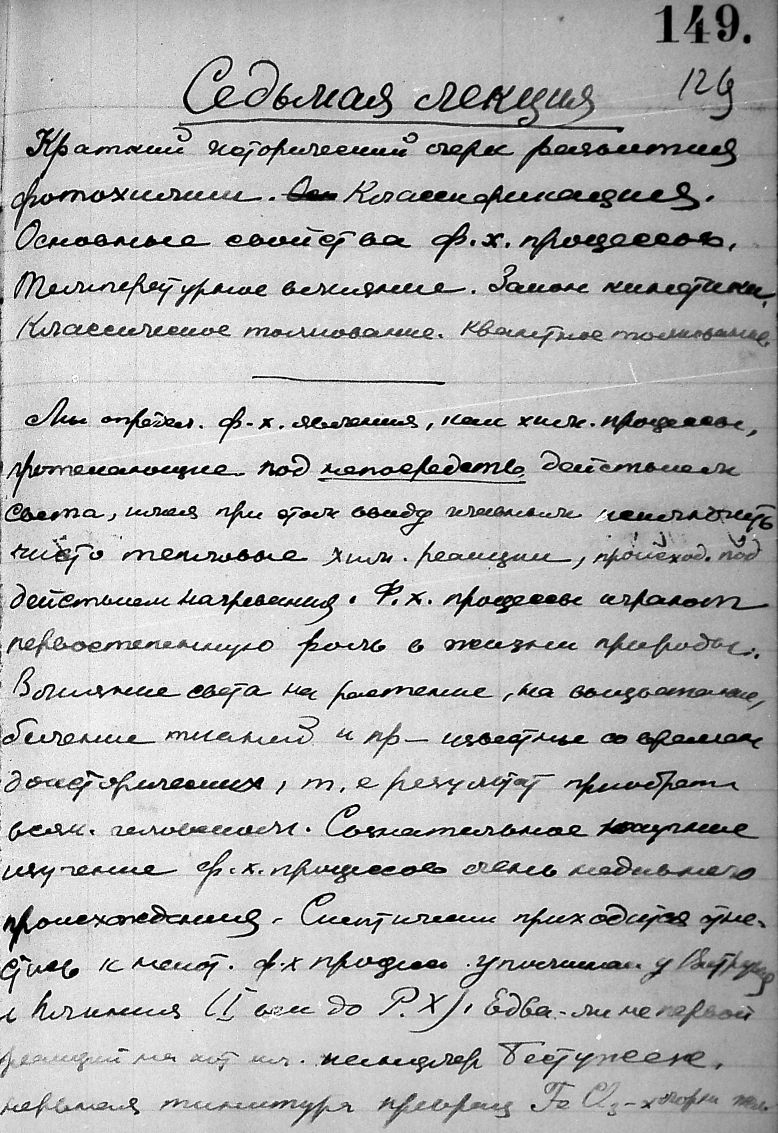 149.
129
Седьмая лекция
Краткий исторический очерк развития
фотохимии. Классификация.
Основные свойства ф.х. процессов.
Температурное влияние. Закон кинетики.
Классическое толкование. Квантное толкование.
Мы определ. ф.-х. явления, как хим. процессы,
протекающие под непосредств. действием
света, имея при этом ввиду исключить
чисто тепловые хим. реакции, происход. под
действием нагревания. Ф.х. процессы играют
первостепенную роль в жизни природы.
Влияние света на растение, на выцветание,
беление тканей и пр – известны со времен
доисторических, т.е результат приобретен
всем. человеком. Сознательное научные
изучение ф.х. процессов очень недавнего
происхождения. Скептически приходится отне-
стись к ф.х процесс. у Витрувия
и Плиния (I век до Р.Х). Едва-ли не первой
реакцией канцлер Бестужев.
нервная тинктура превращ FeCl3 - хлорн